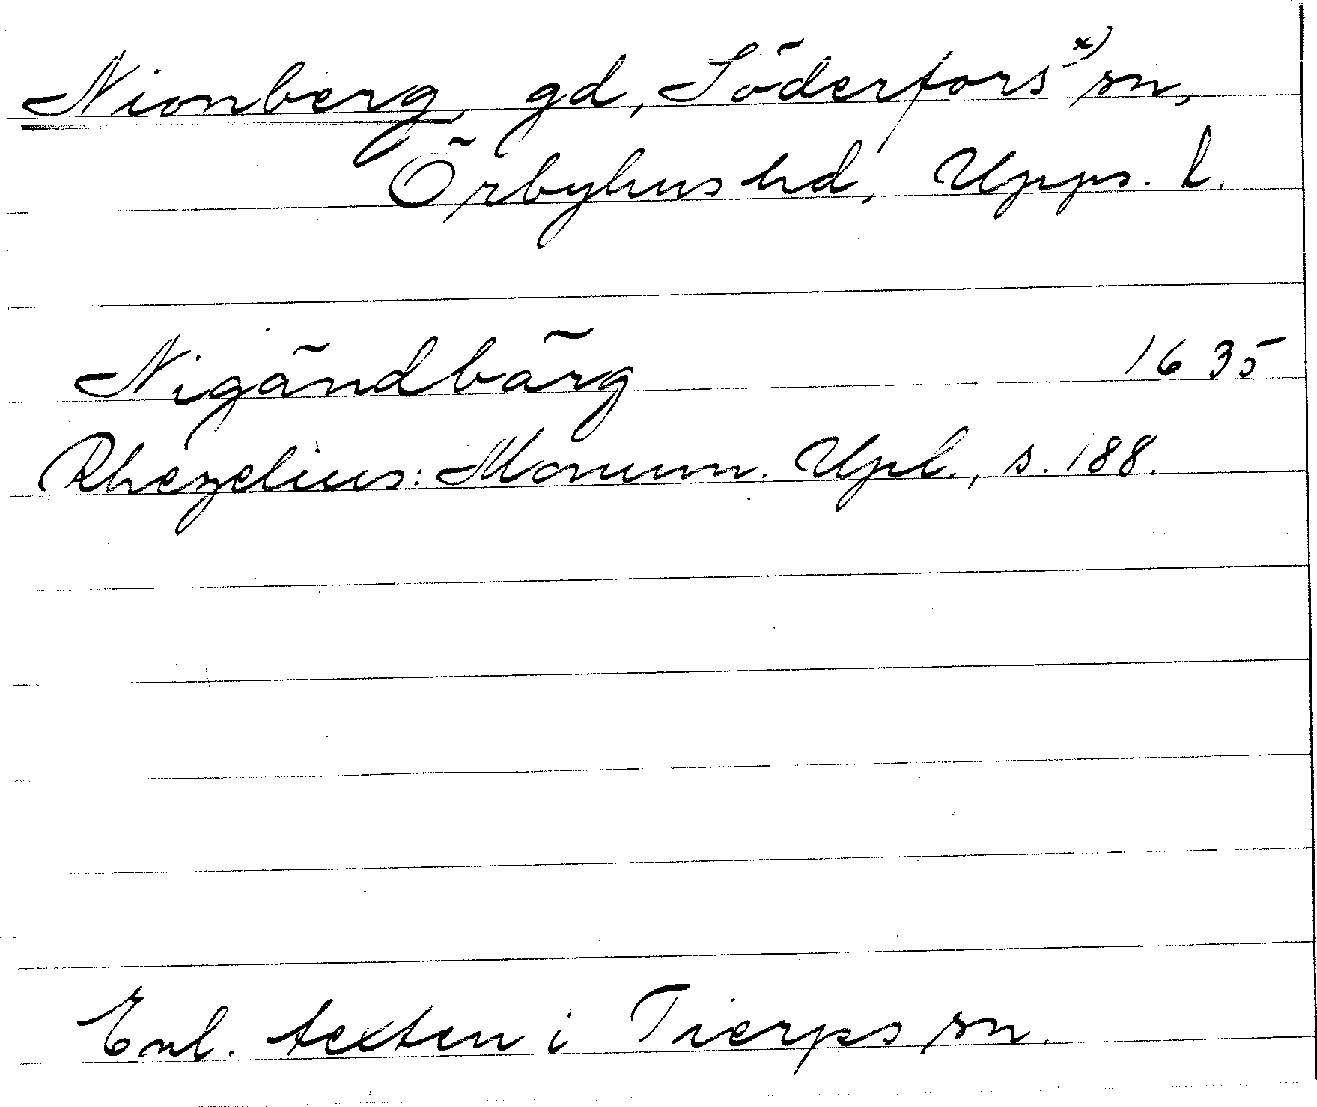 Nionberg, gd, Söderfors x) sn,
Örbyhus hd, Upps. l.
Nigändbärg 1635
Rhezelius: Monum. Upl., s. 188.
Enl. texten i Tierps sn.